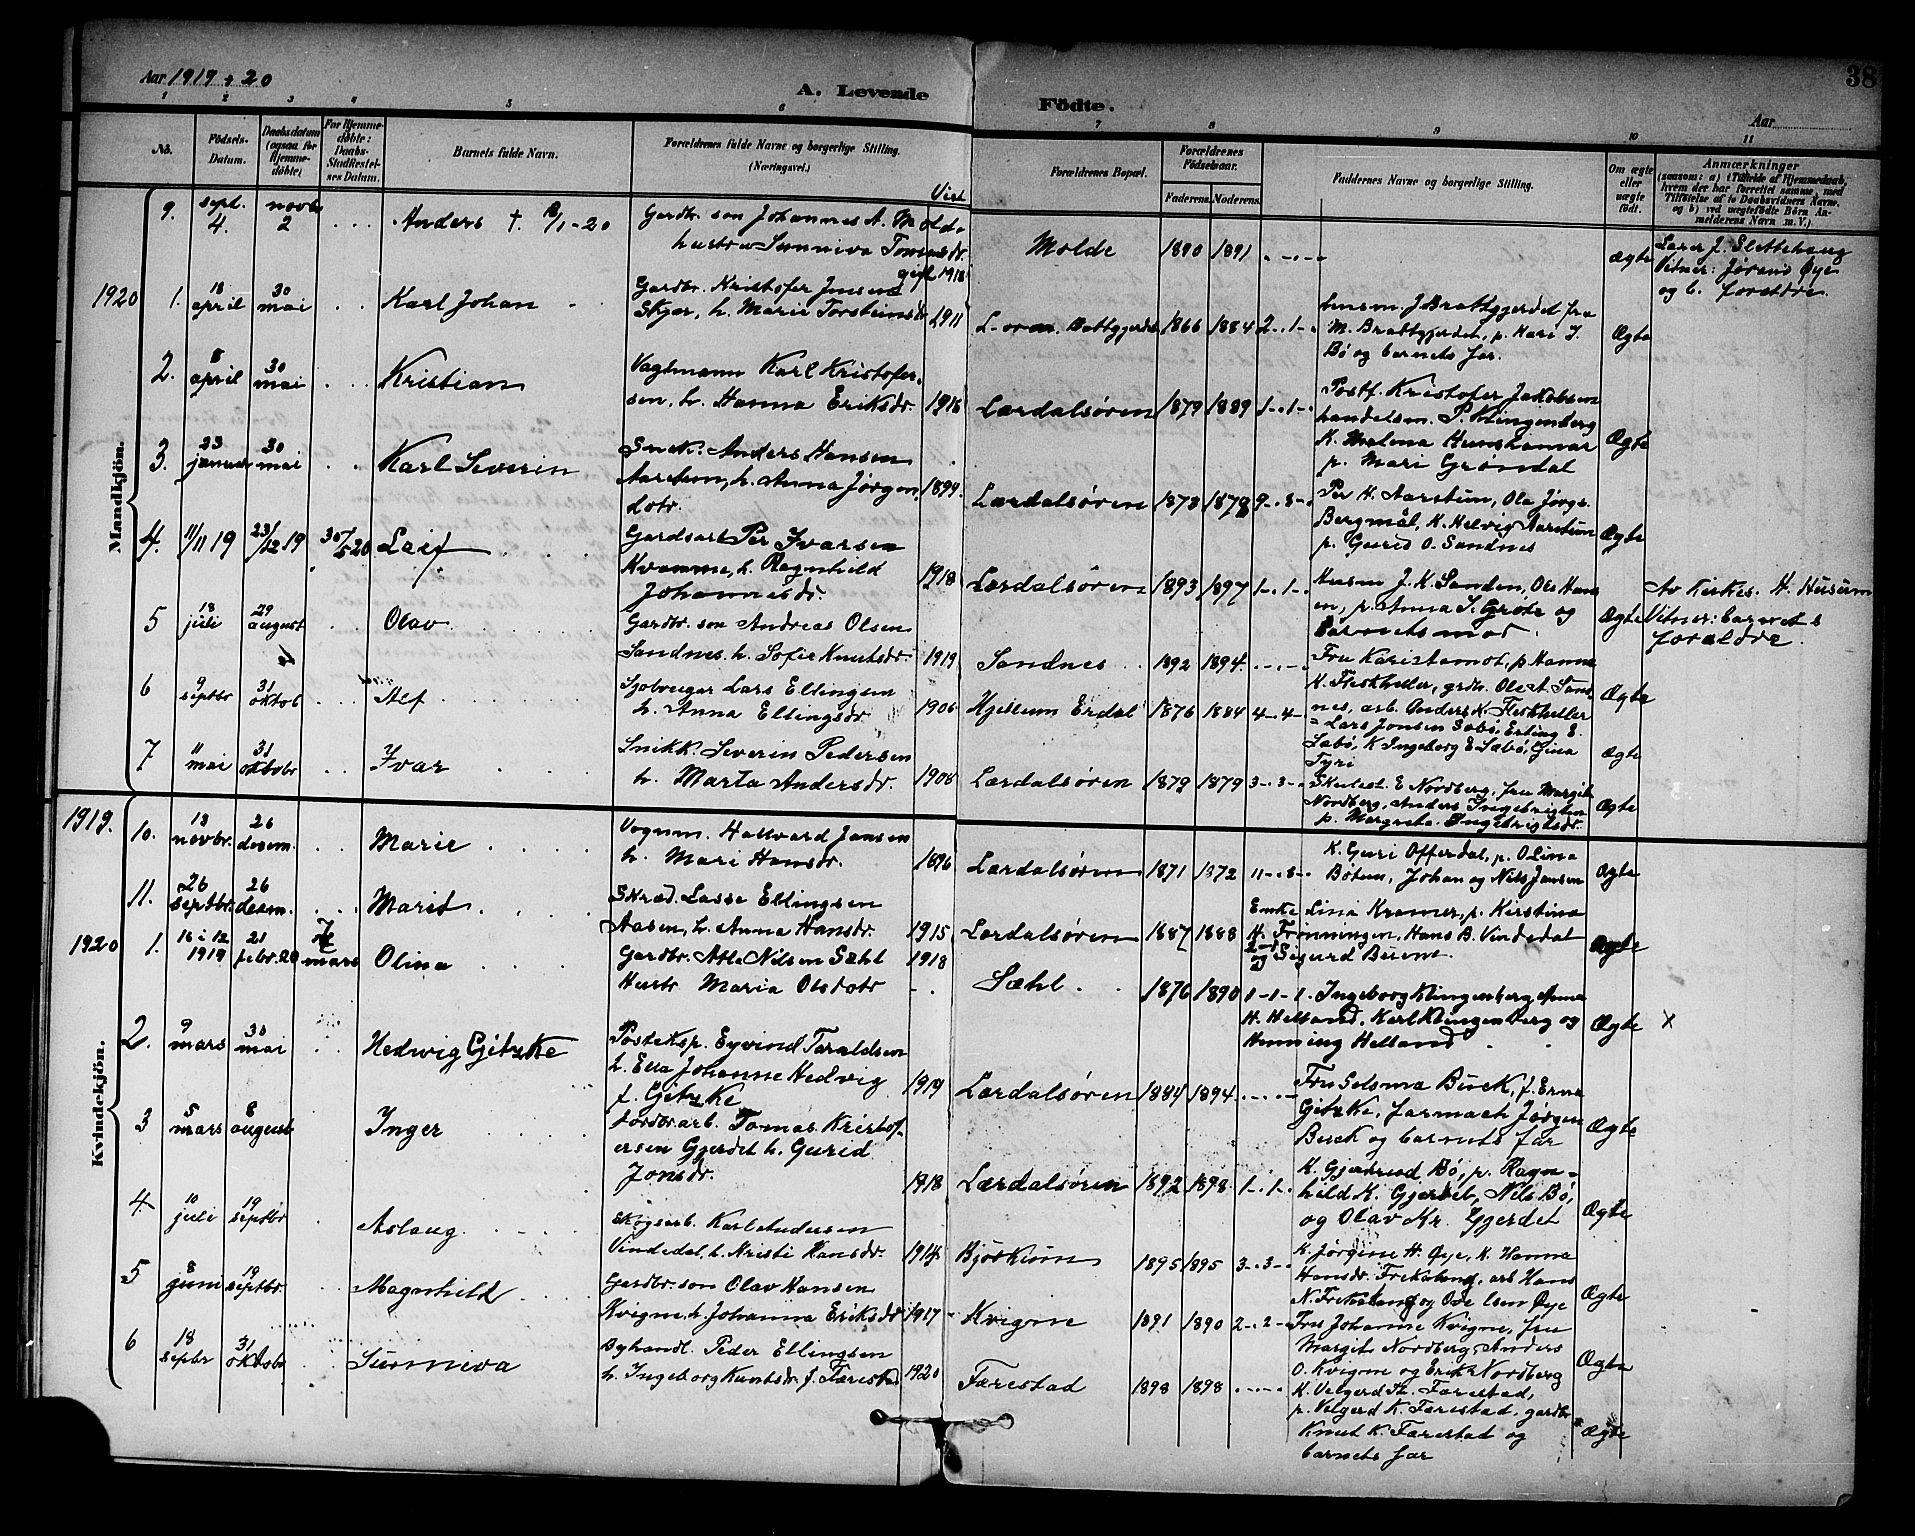 38
Aar 1919 + 20
A. Levende
Födte.
Aar
1 2 3 4 5 6 7 8 9 10 11
No.
Födsels-
Datum.
Daabsdatum
(ogsaa for
Hjemme-
döbte)
For Hjemme-
døbte:
Daabs-
Stadfestel-
ses Datum.
Barnets fulde Navn.
Forældrenes fulde Navne og borgerlige Stilling.
(Næringsvei.)
Forældrenes Bopæl.
Forældrenes
Födselsaar.
Faderens. Moderens.
Faddernes Navne og borgerlige Stilling.
Om ægte
eller
uægte
født.
Anmærkninger
(saasom: a) i Tilfælde af Hjemmedaab,
hvem der har forrettet samme, med
Tilföielse af to Daabsvidners Navne,
og b) ved uægtefödte Börn An-
melderens Navn m. V.)
Mandkjön.
9. sept. 4. novbr 2 Anders + /1-20
Gardbr. son Johannes A. Molde
hustru Sunniva Tomasdr.
gift 1918
Molde 1890 1891 ægte
Lærer J. Slettehaug
Vitner: Jørand Øye
og b. foreldre.
1920 1. 18 april 30 mai Karl Johan
Gardbr. Kristofer Jensen
Skjær, h. Marie Torsteinsdr 1911
L-øren. Brattgjerde 1866 1884 2-.1-.
lensm. J. Brattgjerdet fru
M. Brattgjerdet, p. Kari J.
Bö og barnets far.
Ægte
2. 8 april 30 mai Kristian
Vagtmann Karl Kristofer-
sen, h. Hanna Eriksdr. 1916
Lærdalsøren 1879 1889 1-.1-.
Postf. Kristofer Jakobsen
handelsm. P. Klingenberg
K. Malena Kunshamar
p. Mari Grøndal
Ægte
3. 23 januar 30 mai Karl Severin
Snek. Anders Hansen
Aarstun, h. Anna Jørgen 1899.
dotr.
Lærdalsøren 1873 1878 9-.8-.
Per H. Aarstun, Ola Jørgs.
Bergmål, K. Helvig Aarstun
p. Gurid O. Sandnes
Ægte
4. 11/11 19 23/12 19 30/5 20 Leif
Gardsarb Per Ivarsen
Kvamme, h. Ragnhild 1918
Johannesdr.
Lærdalsøren 1893 1897 1-.1-.
Husm J. K. Sanden, Ole Hans
en, p. Anna S. Grøte og
barnets mor.
Ægte
Av Kirkes. H. Husum
Vitner: barnets
foreldre.
5 18 juli 29 august Olav
Gardbr. son Andreas Olsen
Sandnes h. Sofie Knutsdr. 1919
Sandnes 1892 1894.
Fru Kari Stamot, p Hanna
K. Fleskheller, grdb. Ole A. Sand-
nes, arb. Anders K. Fleskheller
Ægte
6 9 septbr 31 oktob Alf
Sjobruger Lars Ellingsen
h. Anna Ellingsdr 1906
Hjellum Erdal 1876 1884 4-.4-.
Lars Jonsen Sæbö, Erling E.
Sæbö, K Ingeborg E. Sæbö, Gina
Tyri
Ægte
7 11 mai 31 oktobr Ivar
Snikk. Severin Pedersen
h. Marta Andersdr. 1906
Lærdalsøren 1879 1879 3-.3-.
Skulest. E Nordberg, fru Margit
Nordberg, Anders Ingebrigtsen
p. Margreta Ingebrigtsdr.
Ægte
Kvindekjön.
1919. 10. 13 novbr. 26 desem. Marie
Vognm. Hallvard Jansen
h. Mari Hansdr. 1896
Lærdalsøren 1871 1872 11-.8-.
K. Guri Offerdal, p. Olina
Bøtun, Johan og Nils Jansen
Ægte
11. 26 septbr. 26 desm. Marit
Skræd. Lasse Ellingsen
Aasen, h. Anna Hansdr. 1915
Lærdalsøren 1887 1888
Enke Lina Kramer, p. Kirstina
H. Frønningen, Hans B. Vindedal
og Sigurd Buene.
Ægte
1920 1. 16 i 12 1919 21 febr. 20 7 mars Olina
Gardbr. Atle Nilsen Sæhl 1918
Hustr Maria Olsdotr
Sæhl. 1876 1890 1-1-1.
Ingeborg Klingenberg Anna
H. Helland, Karl Klingenberg og
Henning Helland
Ægte X
2. 9 mars 30 mai Hedwig Gitzke
Posteksp. Eyvind Taraldsen
h. Ella Johanne Hedvig 1919
f. Gitzke
Lærdalsøren 1884 1894.
Fru Selma Buck, f. Erna
Gitzke, farmach Jørgen
Buck og barnets far
Ægte
3 5 mars 8 august Inger
Fordbrarb. Tomas Kristof-
ersen Gjerdet h. Gurid
Jonsdr. 1918
Lærdalsøren 1892 1898 1-.1-.
K. Gjertrud Bö, p. Ragn-
hild K. Gjerdet, Nils Bö,
og Olav Kr. Gjerdet
Ægte
4. 10 juli 19 septbr Aslaug
Skogsarb. Karl Andersen
Vindedal, h. Kristi Hansdr. 1914
Bjørkum 1895 1895 3-.3-.
K. Jørgine H. Øye, K. Hanna
Hansdr. Frikstad, arb Hans
N. Frikstad og Ove Olsen Øye
Ægte
5 8 juni 19 septbr. Magnhild
Gardbr. son Olav Hansen
Kvigne, h. Johanna Eriksdr 1917
Kvigne 1891 1890 2-.2-.
Fru Johanne Kvigne, fru
Margit Nordberg, Anders
O. Kvigne og Erik Nordberg
Ægte
6 18 septbr 31 oktobr Sunneva
Byhandl. Peder Ellingsen
h. Ingeborg Knutsdr. f. Færestad 1920
Færestad 1898 1898
K. Valgerd Th. Færestad,
p. Valgerd K. Færestad, gardbr
Knut K. Færestad og
barnets far
Ægte